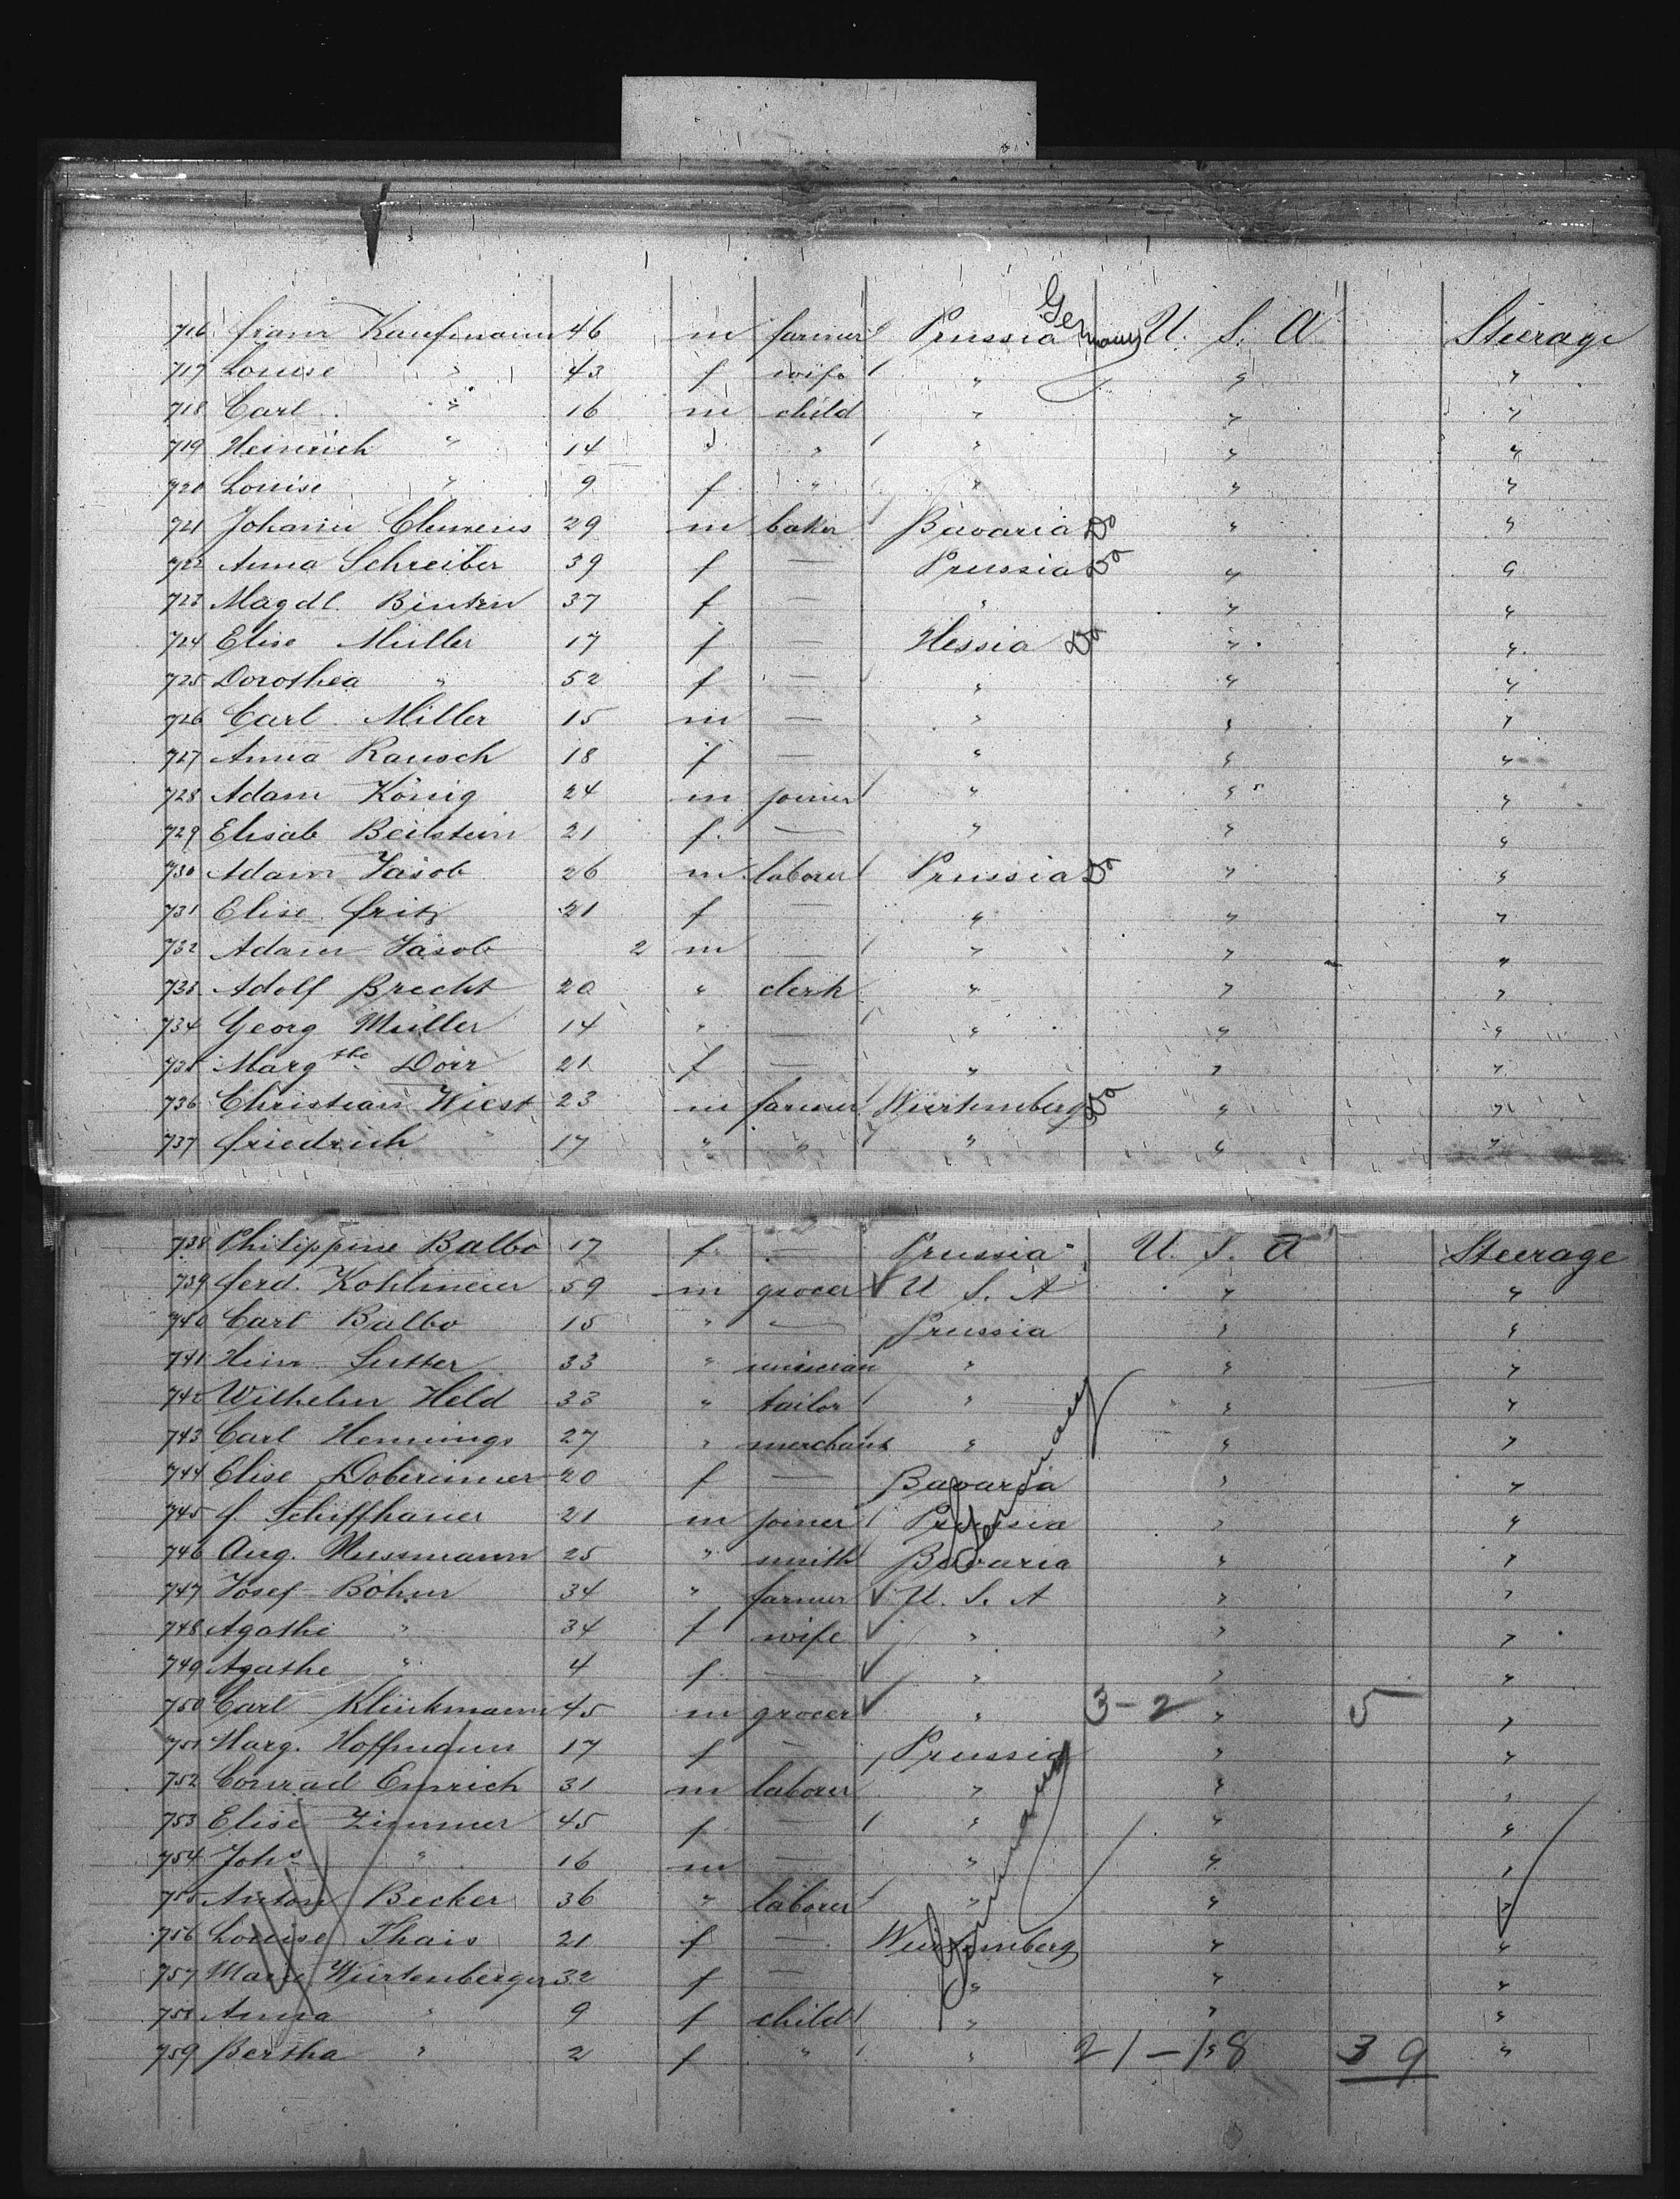 716 Franz Kaufmann 46 m farmer Prussia Germany U. S. A Steerage
717 Louise " 43 f wife " " "
718 Carl " 16 m child " " "
719 Heinrich " 14 " " " " "
720 Louise " 9 f " " " "
721 Johann Clemens 29 m baker Bavaria Do " "
722 Anna Schreiber 39 f — Prussia Do " "
723 Magdl. 37 f — " " "
724 Elise Müller 17 f — Hessia Do " "
725 Dorothea " 52 f — " " "
726 Carl Miller 15 m — " " "
727 Anna Rausch 18 f — " " "
728 Adam König 24 m joiner " " "
729 Elisab Beilstein 21 f. — " " "
730 Adam Jasob 26 m laborer Prussia Do " "
731 Elise Fritz 21 f — " " "
732 Adam Jasob 2 m — " " "
733 Adolf Brecht 20 " clerk " " "
734 Georg Müller 14 " — " " "
735 Margthe Dörr 21 f — " " "
736 Christian Wiest 23 m farmer Würtemberg Do " "
737 Friedrich " 17 " " " " "
738 Philippine Balbo 17 f. — Prussia U. S. A Steerage
739 Ferd. Kohlmeier 59 m grocer U. S. A " "
740 Carl Balbo 15 " — Prussia " "
741 Heinr. Sutter 33 " musician " " "
742 Wilhelm Held 33 " tailor " " "
743 Carl Hennings 27 " merchant " " "
744 Elise Dobereiner 20 f — Bavaria " "
745 F. Schiffhauer 21 m joiner Prussia Germany " "
746 Aug. Nussmann 25 " smith Bavaria " "
747 Josef Böhm 34 " farmer U. S. A " "
748 Agathe " 34 f wife " " "
749 Agathe " 4 f. — " " "
750 Carl Klinkmann 45 m grocer " 3-2 " 5 "
751 Marg. Hoffmann 17 f — Prussia " "
752 Conrad Emrich 31 m laborer " " "
753 Elise Zimmer 45 f — " " "
754 Johs " 16 m — " " "
755 Anton Becker 36 " laborer " " "
756 Louise Thais 21 f — Würtemberg Germany " "
757 Marie Würtenberger 32 f — " " "
758 Anna " 9 f child " " "
759 Bertha " 2 f " " 21-18 " 39 "